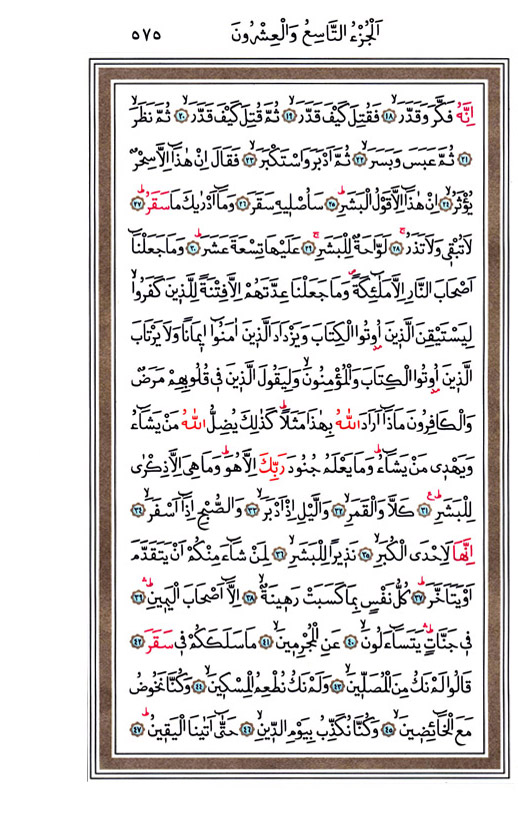 اَلْجُزْءُ التَّاسِعُ وَالْعِشْرُونَ ٥٧٥
اِنَّهُ فَكَّرَ وَقَدَّرَۙ ﴿١٨﴾ فَقُتِلَ كَيْفَ قَدَّرَۙ ﴿١٩﴾ ثُمَّ قُتِلَ كَيْفَ قَدَّرَۙ ﴿٢٠﴾ ثُمَّ نَظَرَۙ
﴿٢١﴾ ثُمَّ عَبَسَ وَبَسَرَۙ ﴿٢٢﴾ ثُمَّ اَدْبَرَ وَاسْتَكْبَرَۙ ﴿٢٣﴾ فَقَالَ اِنْ هٰذَٓا اِلَّا سِحْرٌ
يُؤْثَرُۙ ﴿٢٤﴾ اِنْ هٰذَٓا اِلَّا قَوْلُ الْبَشَرِۜ ﴿٢٥﴾ سَاُصْلِيهِ سَقَرَ ﴿٢٦﴾ وَمَٓا اَدْرٰيكَ مَا سَقَرُۜ ﴿٢٧﴾
لَا تُبْقِي وَلَا تَذَرُۚ ﴿٢٨﴾ لَوَّاحَةٌ لِلْبَشَرِۚ ﴿٢٩﴾ عَلَيْهَا تِسْعَةَ عَشَرَۜ ﴿٣٠﴾ وَمَا جَعَلْنَٓا
اَصْحَابَ النَّارِ اِلَّا مَلٰٓئِكَةًۖ وَمَا جَعَلْنَا عِدَّتَهُمْ اِلَّا فِتْنَةً لِلَّذِينَ كَفَرُواۙ
لِيَسْتَيْقِنَ الَّذِينَ اُو۫تُوا الْكِتَابَ وَيَزْدَادَ الَّذِينَ اٰمَنُٓوا اِيمَانًا وَلَا يَرْتَابَ
الَّذِينَ اُو۫تُوا الْكِتَابَ وَالْمُؤْمِنُونَۙ وَلِيَقُولَ الَّذِينَ فِي قُلُوبِهِمْ مَرَضٌ
وَالْكَافِرُونَ مَاذَٓا اَرَادَ اللّٰهُ بِهٰذَا مَثَلًاۜ كَذٰلِكَ يُضِلُّ اللّٰهُ مَنْ يَشَٓاءُ
وَيَهْدِي مَنْ يَشَٓاءُۜ وَمَا يَعْلَمُ جُنُودَ رَبِّكَ اِلَّا هُوَۜ وَمَا هِيَ اِلَّا ذِكْرٰى
لِلْبَشَرِۜ۟ ﴿٣١﴾ كَلَّا وَالْقَمَرِۙ ﴿٣٢﴾ وَالَّيْلِ اِذْ اَدْبَرَۙ ﴿٣٣﴾ وَالصُّبْحِ اِذَٓا اَسْفَرَۙ ﴿٣٤﴾
اِنَّهَا لَاِحْدَى الْكُبَرِۙ ﴿٣٥﴾ نَذِيرًا لِلْبَشَرِۙ ﴿٣٦﴾ لِمَنْ شَٓاءَ مِنْكُمْ اَنْ يَتَقَدَّمَ
اَوْ يَتَاَخَّرَۜ ﴿٣٧﴾ كُلُّ نَفْسٍ بِمَا كَسَبَتْ رَهِينَةٌۙ ﴿٣٨﴾ اِلَّٓا اَصْحَابَ الْيَمِينِۜۛ ﴿٣٩﴾
فِي جَنَّاتٍۜۛ يَتَسَٓاءَلُونَۙ ﴿٤٠﴾ عَنِ الْمُجْرِمِينَۙ ﴿٤١﴾ مَا سَلَكَكُمْ فِي سَقَرَۜ ﴿٤٢﴾
قَالُوا لَمْ نَكُ مِنَ الْمُصَلِّينَۙ ﴿٤٣﴾ وَلَمْ نَكُ نُطْعِمُ الْمِسْكِينَۙ ﴿٤٤﴾ وَكُنَّا نَخُوضُ
مَعَ الْخَٓائِضِينَۙ ﴿٤٥﴾ وَكُنَّا نُكَذِّبُ بِيَوْمِ الدِّينِۙ ﴿٤٦﴾ حَتّٰٓى اَتٰينَا الْيَقِينُۜ ﴿٤٧﴾